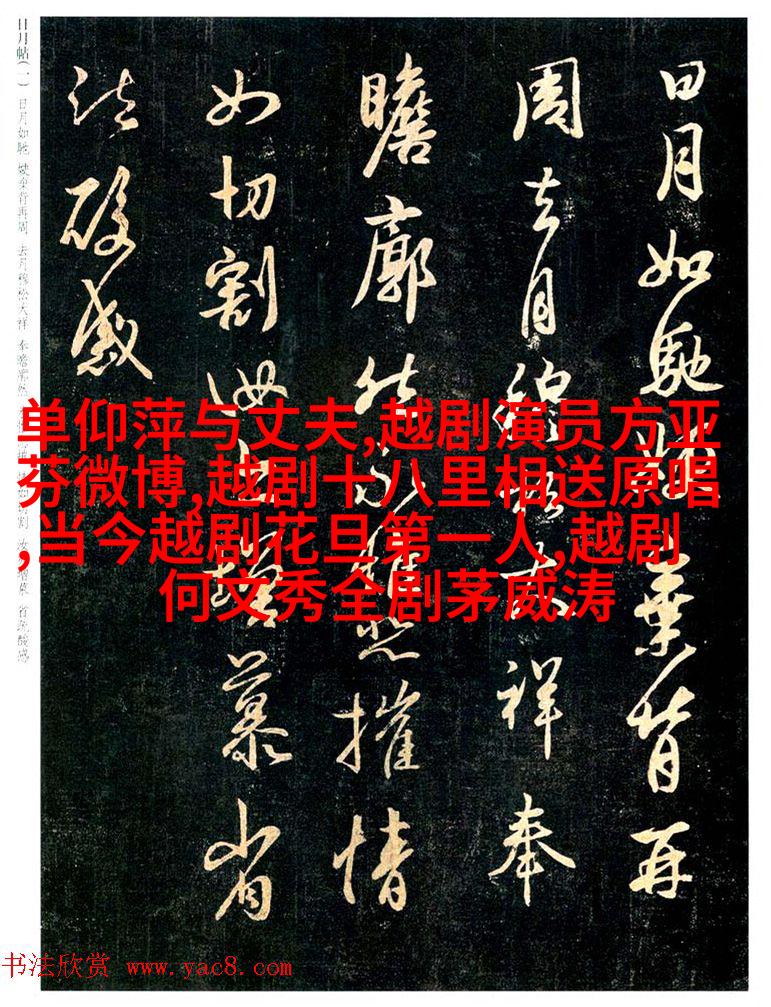 日月如馳嫂棄背再
周去月穆松大祥奉
瞻廓然永惟悲摧情
如切割汝亦增慕省
疏酸感
日月帖(一) 日月如馳 嫂棄背再周 去月穆松大祥 奉瞻廓然 切割 汝 增慕 省疏酸感
单仰萍与丈夫,越剧演员方亚
芬微博,越剧十八里相送原唱
,当今越剧花旦第一人,越剧
何文秀全剧茅威涛
书法欣赏 www.yac8.com